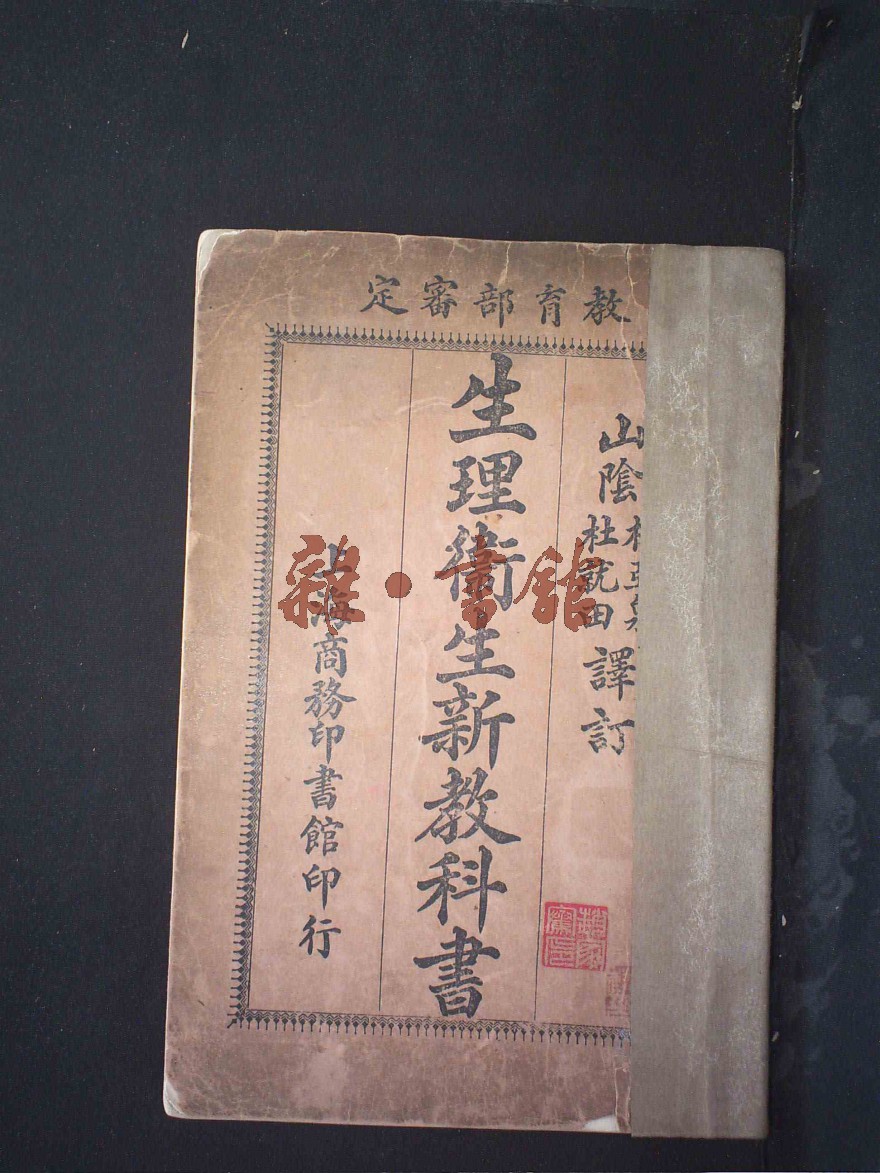 教育部審定
山陰
杜就田
譯訂
生理衞生新教科書
上海商務印書館印行
雜·書館